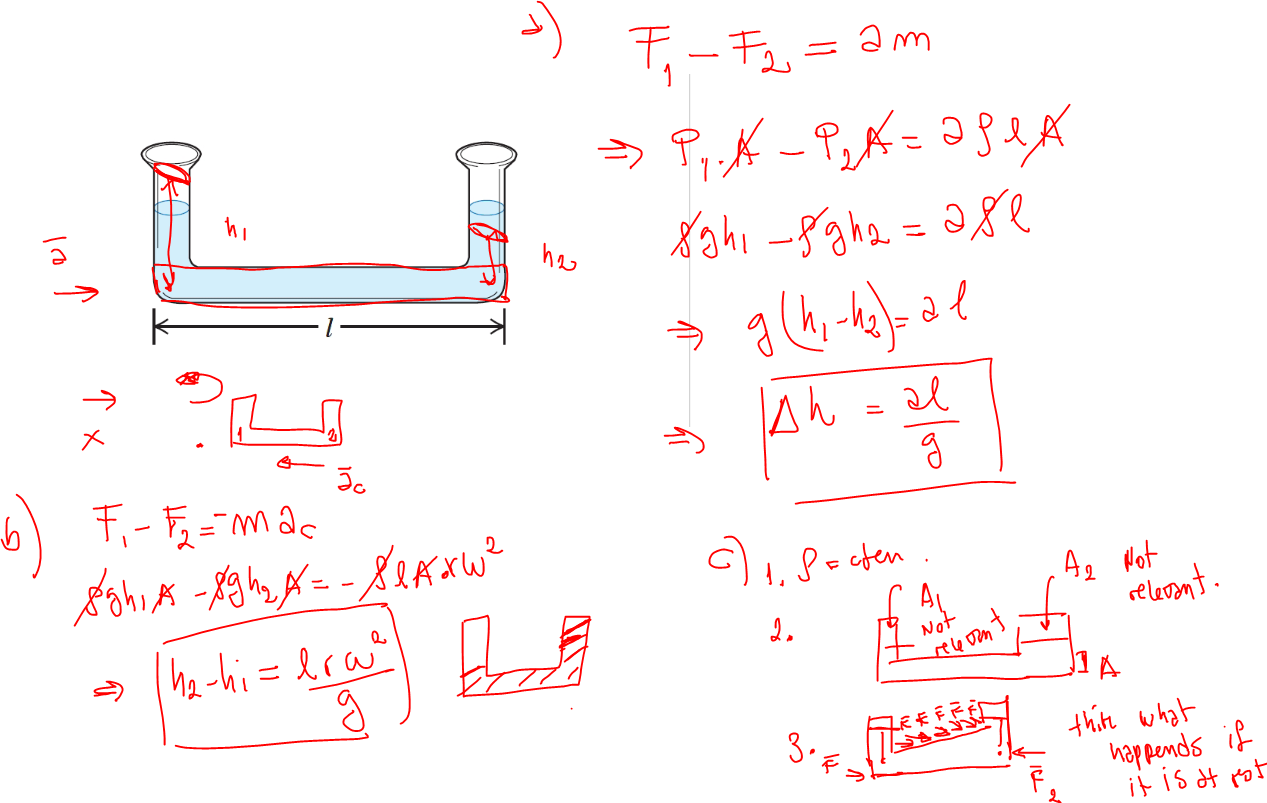 a)
F₁ - F₂ = am
⇒ P₁.A - P₂A = aρlA
ρgh₁ - ρgh₂ = aρl
⇒ g(h₁-h₂) = al
⇒ Δh = al/g
h₁
h₂
a
→
l
→
x
1 2
ac
b)
F₁ - F₂ = -mac
ρgh₁A - ρgh₂A = -ρlArω²
⇒ h₂-h₁ = lrω²/g
c) 1. ρ = cten.
2.
A₁ Not relevant
A₂ Not relevant.
A
3. F
F F F F F
F₂
what
happends if
it is at rot